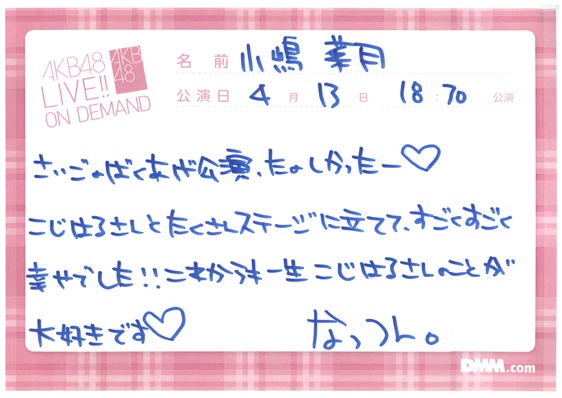 AKB48
LIVE!!
ON DEMAND
AKB
48
名前 小嶋 菜月
公演日 4月 13日 18:30 公演
さいごのばくあげ公演、たのしかったー♡
こじはるさんとたくさんステージに立てて、すごくすごく
幸せでした!!これからも一生こじはるさんのことが
大好きです♡ なっつん。
DMM.com